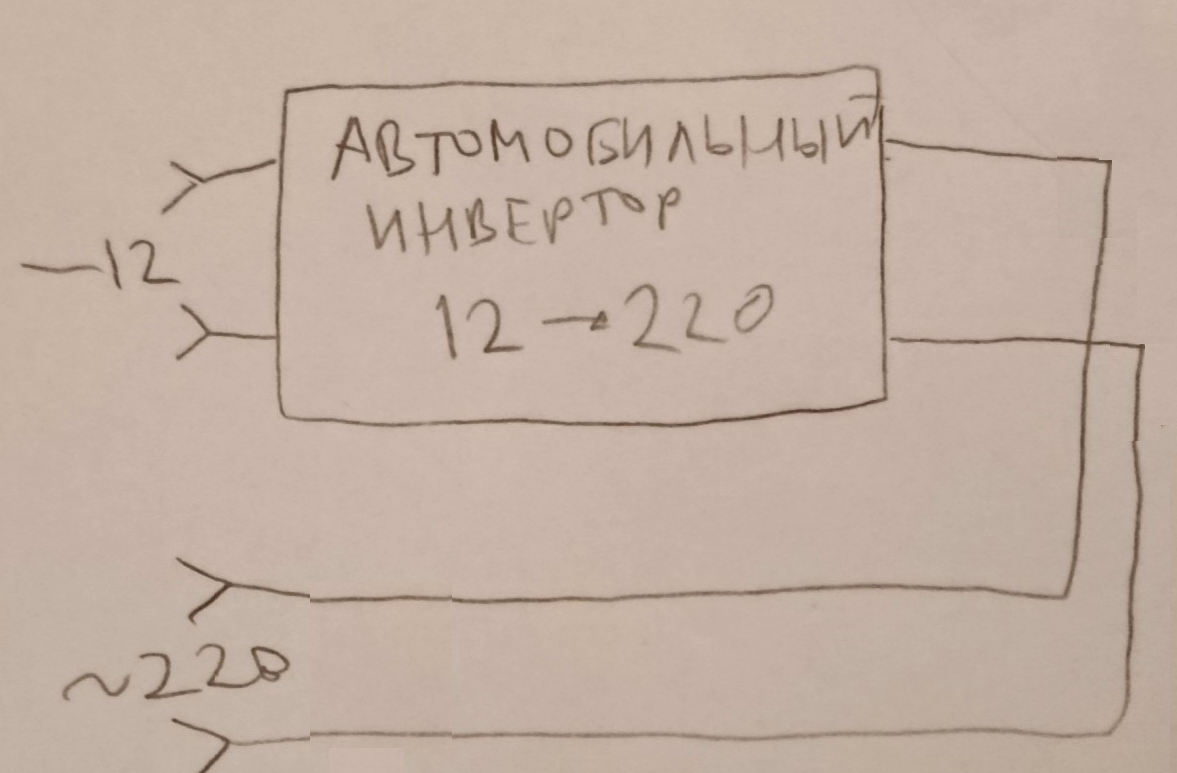 АВТОМОБИЛЬНЫЙ
ИНВЕРТОР
—12
12→220
~220